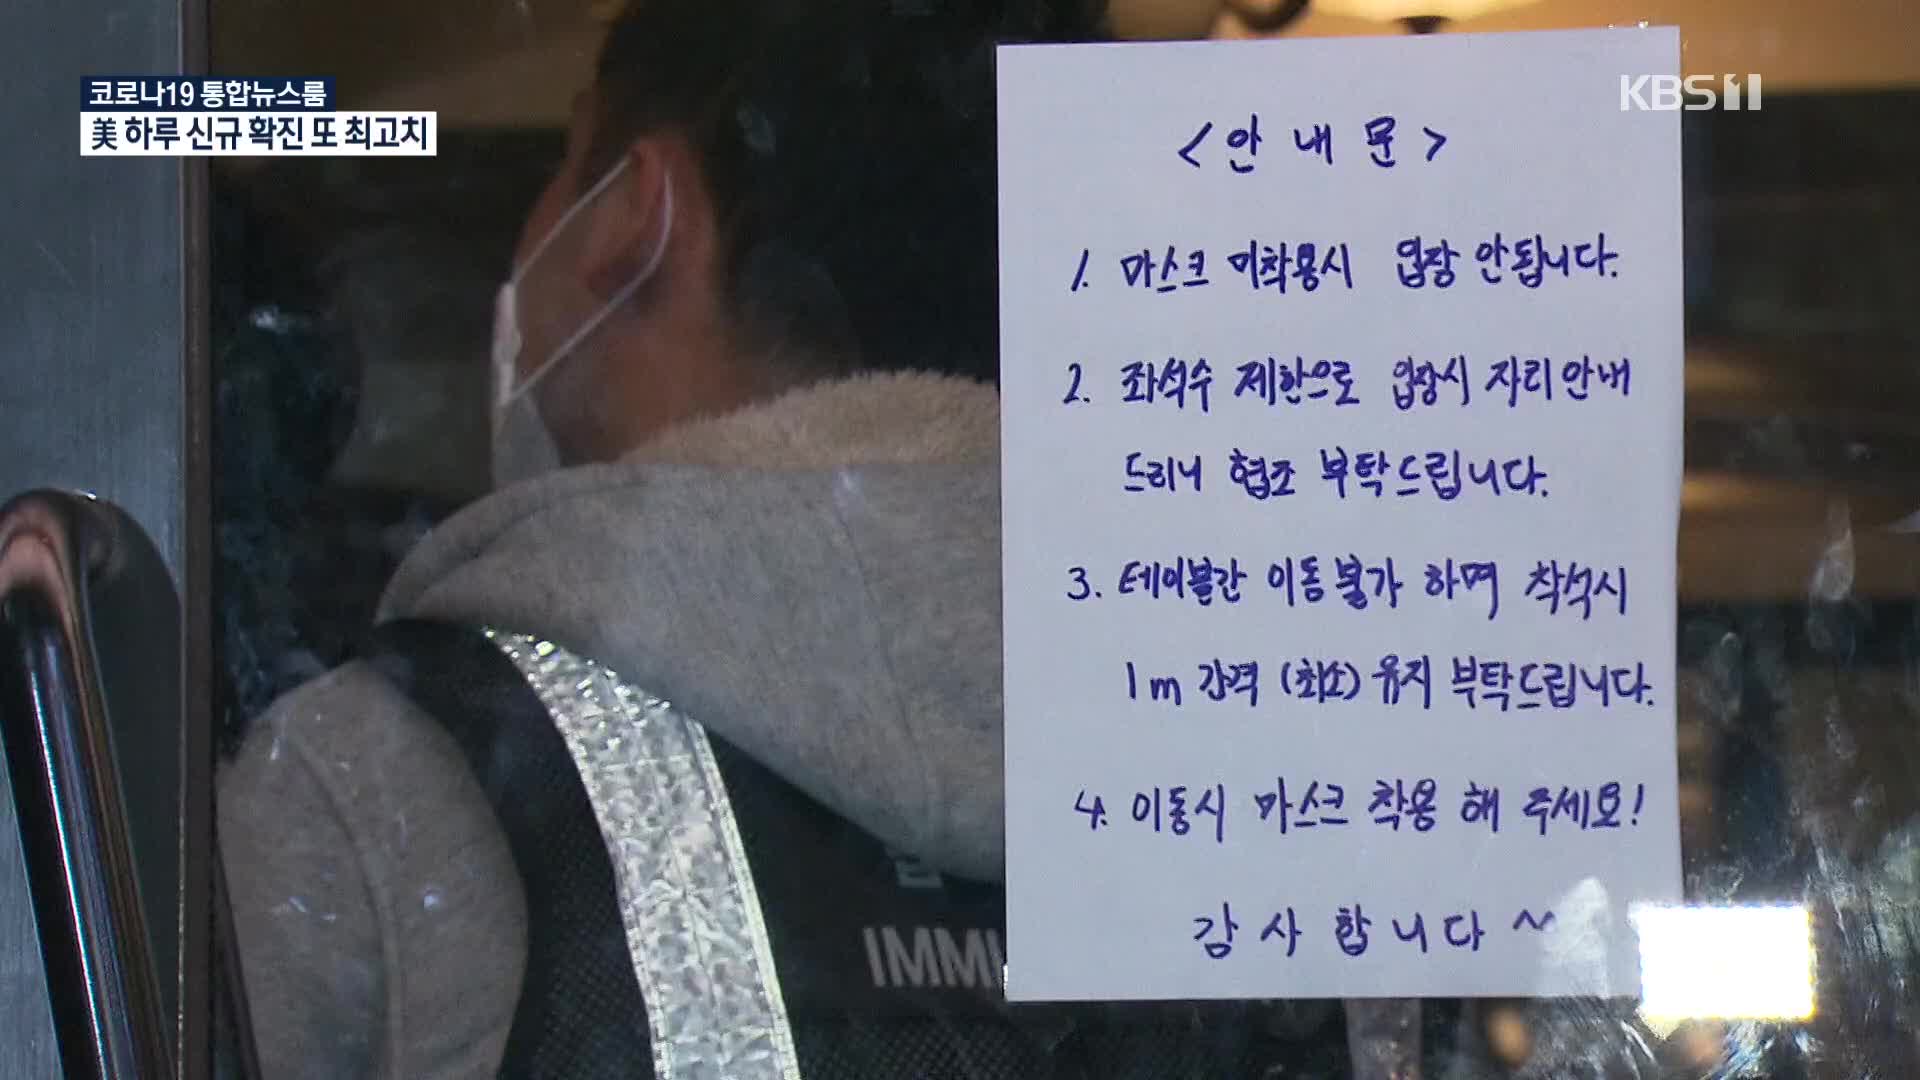 코로나19 통합뉴스룸
美 하루 신규 확진 또 최고치
KBS 1
<안내문>
1. 마스크 미착용시 입장 안됩니다.
2. 좌석수 제한으로 입장시 자리안내
드리니 협조 부탁드립니다.
3. 테이블간 이동불가 하며 착석시
1m 간격 (최소) 유지 부탁드립니다.
4. 이동시 마스크 착용 해 주세요!
감사합니다~